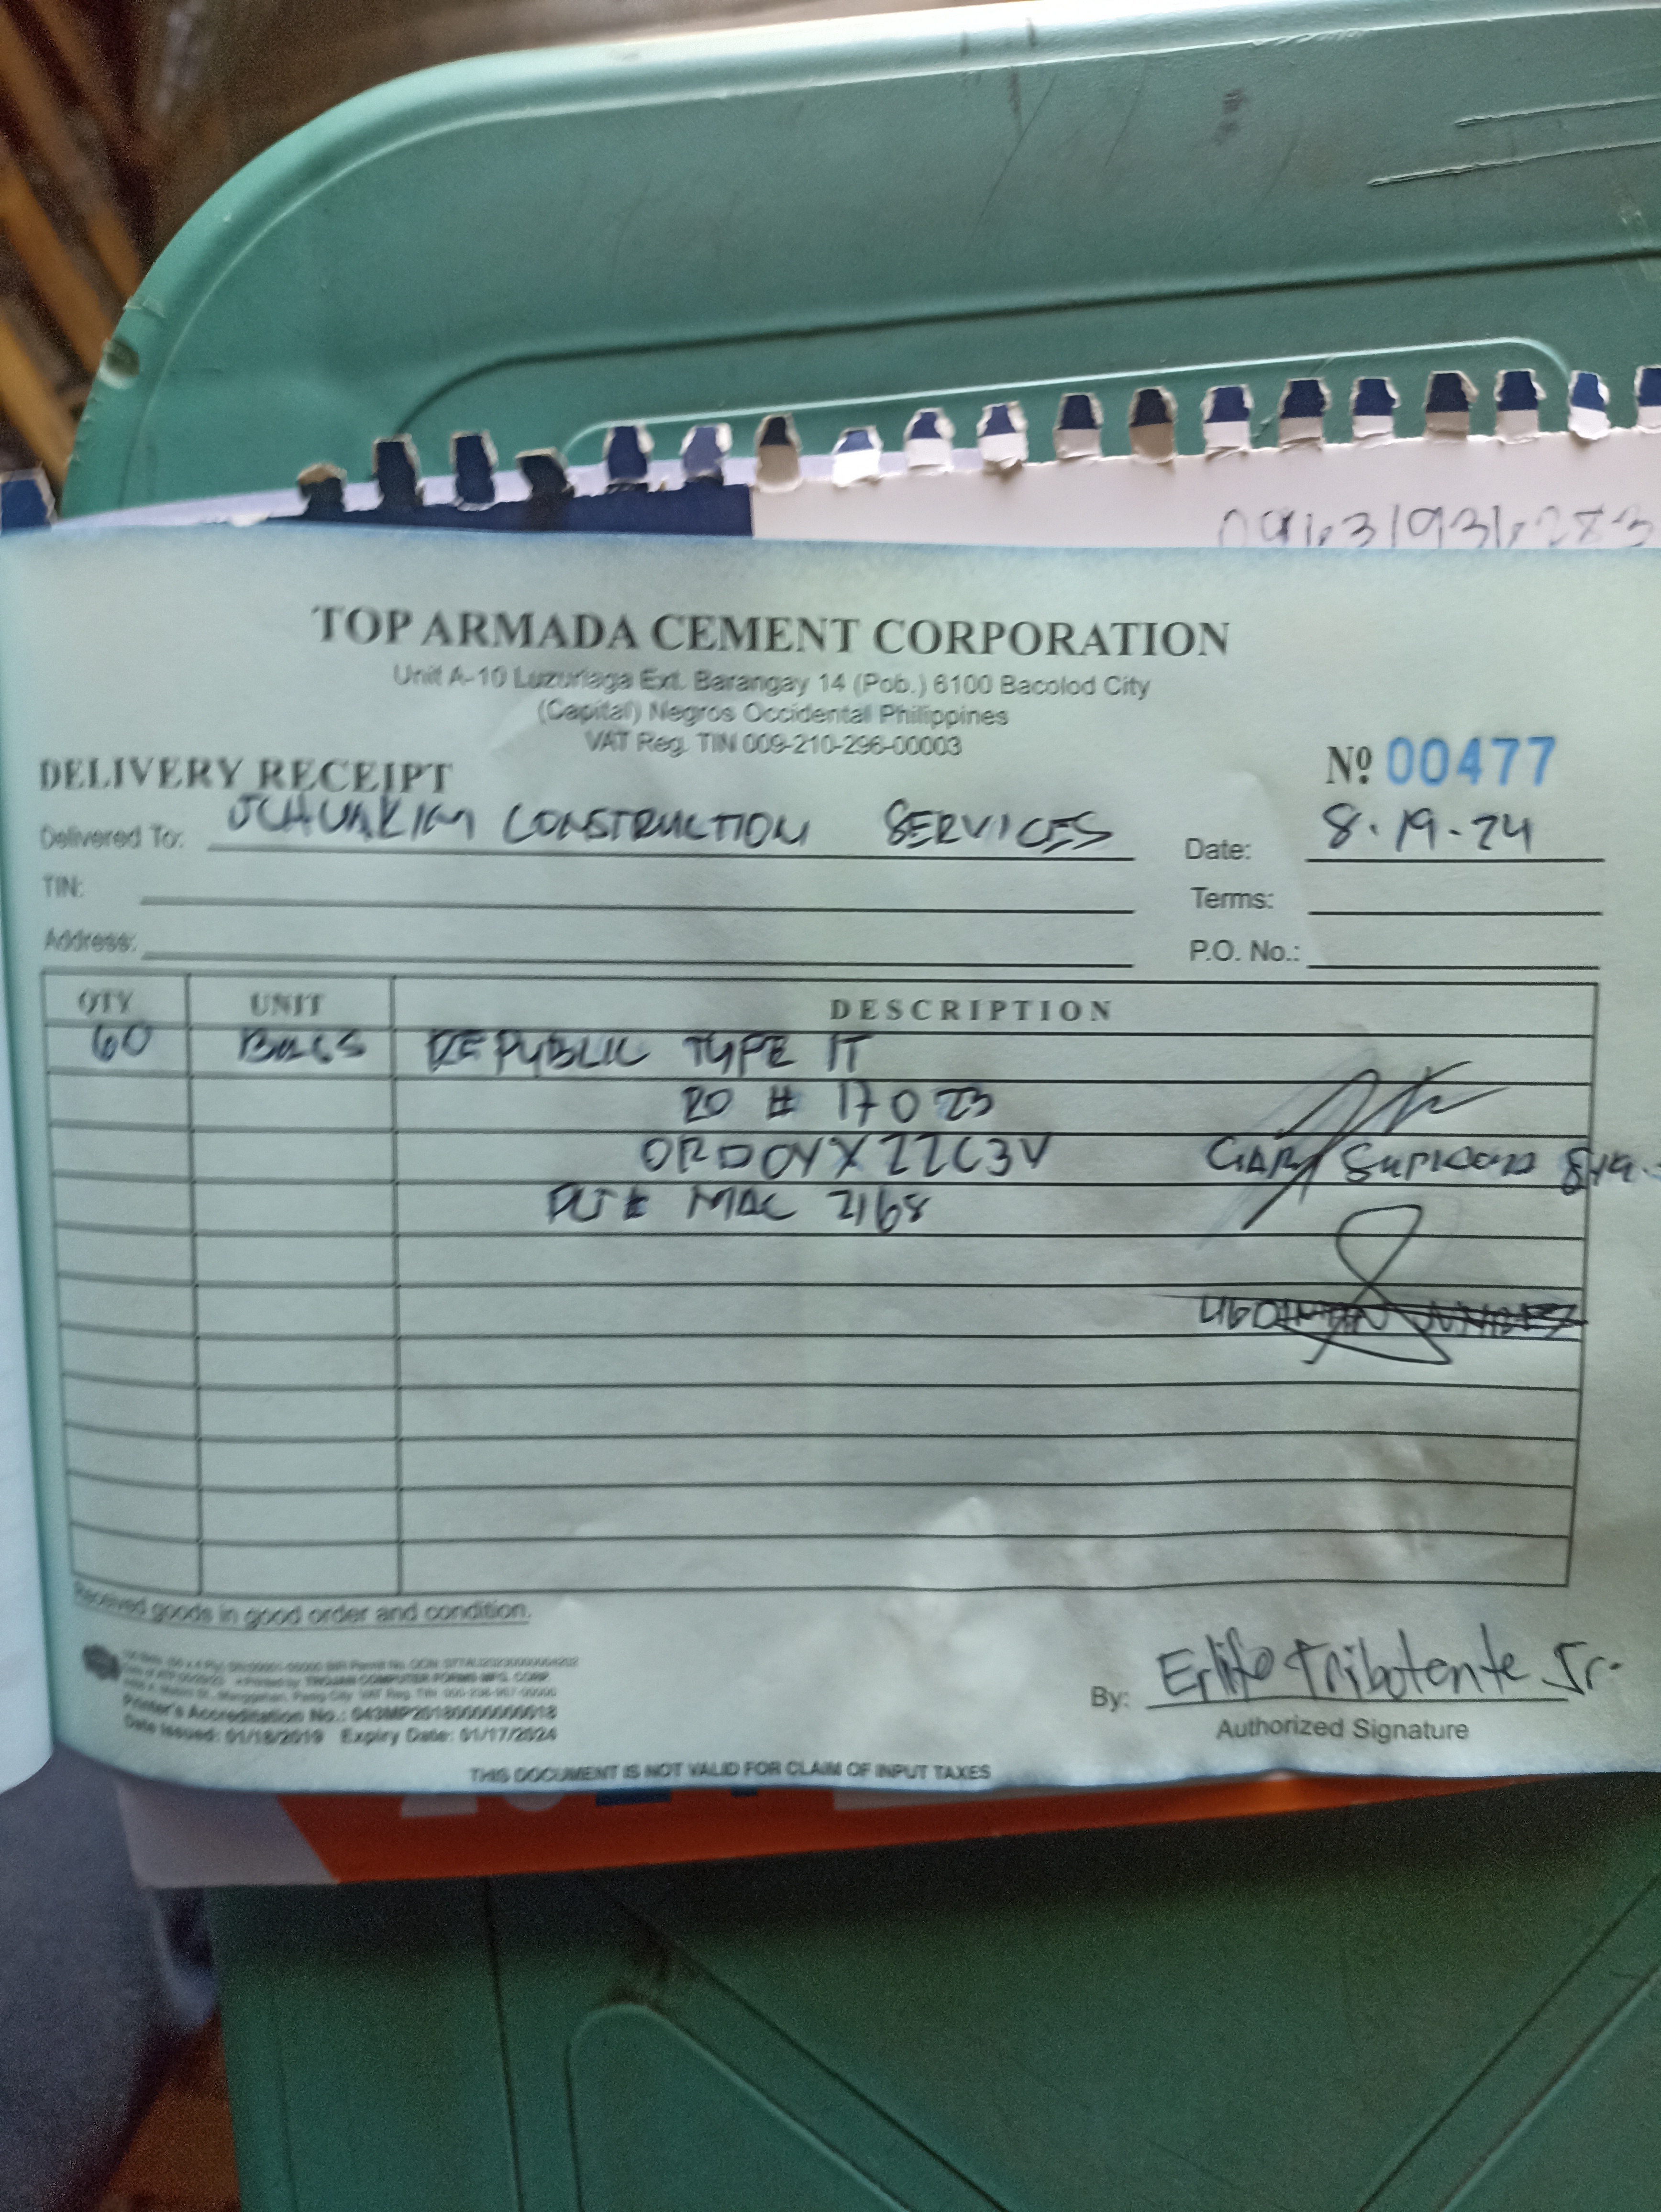 TOP ARMADA CEMENT CORPORATION
Unit A-10 Luzuriaga Ext. Barangay 14 (Pob.) 6100 Bacolod City
(Capital) Negros Occidental Philippines
VAT Reg. TIN 009-210-296-00003
DELIVERY RECEIPT Nº 00477
Delivered To: CONSTRUCTION SERVICES Date: 8.19.24
TIN: Terms:
Address: P.O. No.:
QTY UNIT DESCRIPTION
60 BAGS REPUBLIC TYPE IT
RO # 17023
ORDOYXZZC3V
PLT# MAC 2168
Received goods in good order and condition.
Printer's Accreditation No.: 043MP20180000000018
Date Issued: 01/18/2019 Expiry Date: 01/17/2024
By: Tribotente Jr.
Authorized Signature
THIS DOCUMENT IS NOT VALID FOR CLAIM OF INPUT TAXES